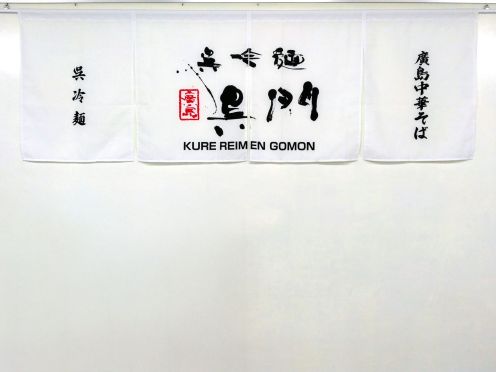 呉冷麺
呉冷麺
呉門
KURE REIMEN GOMON
廣島中華そば